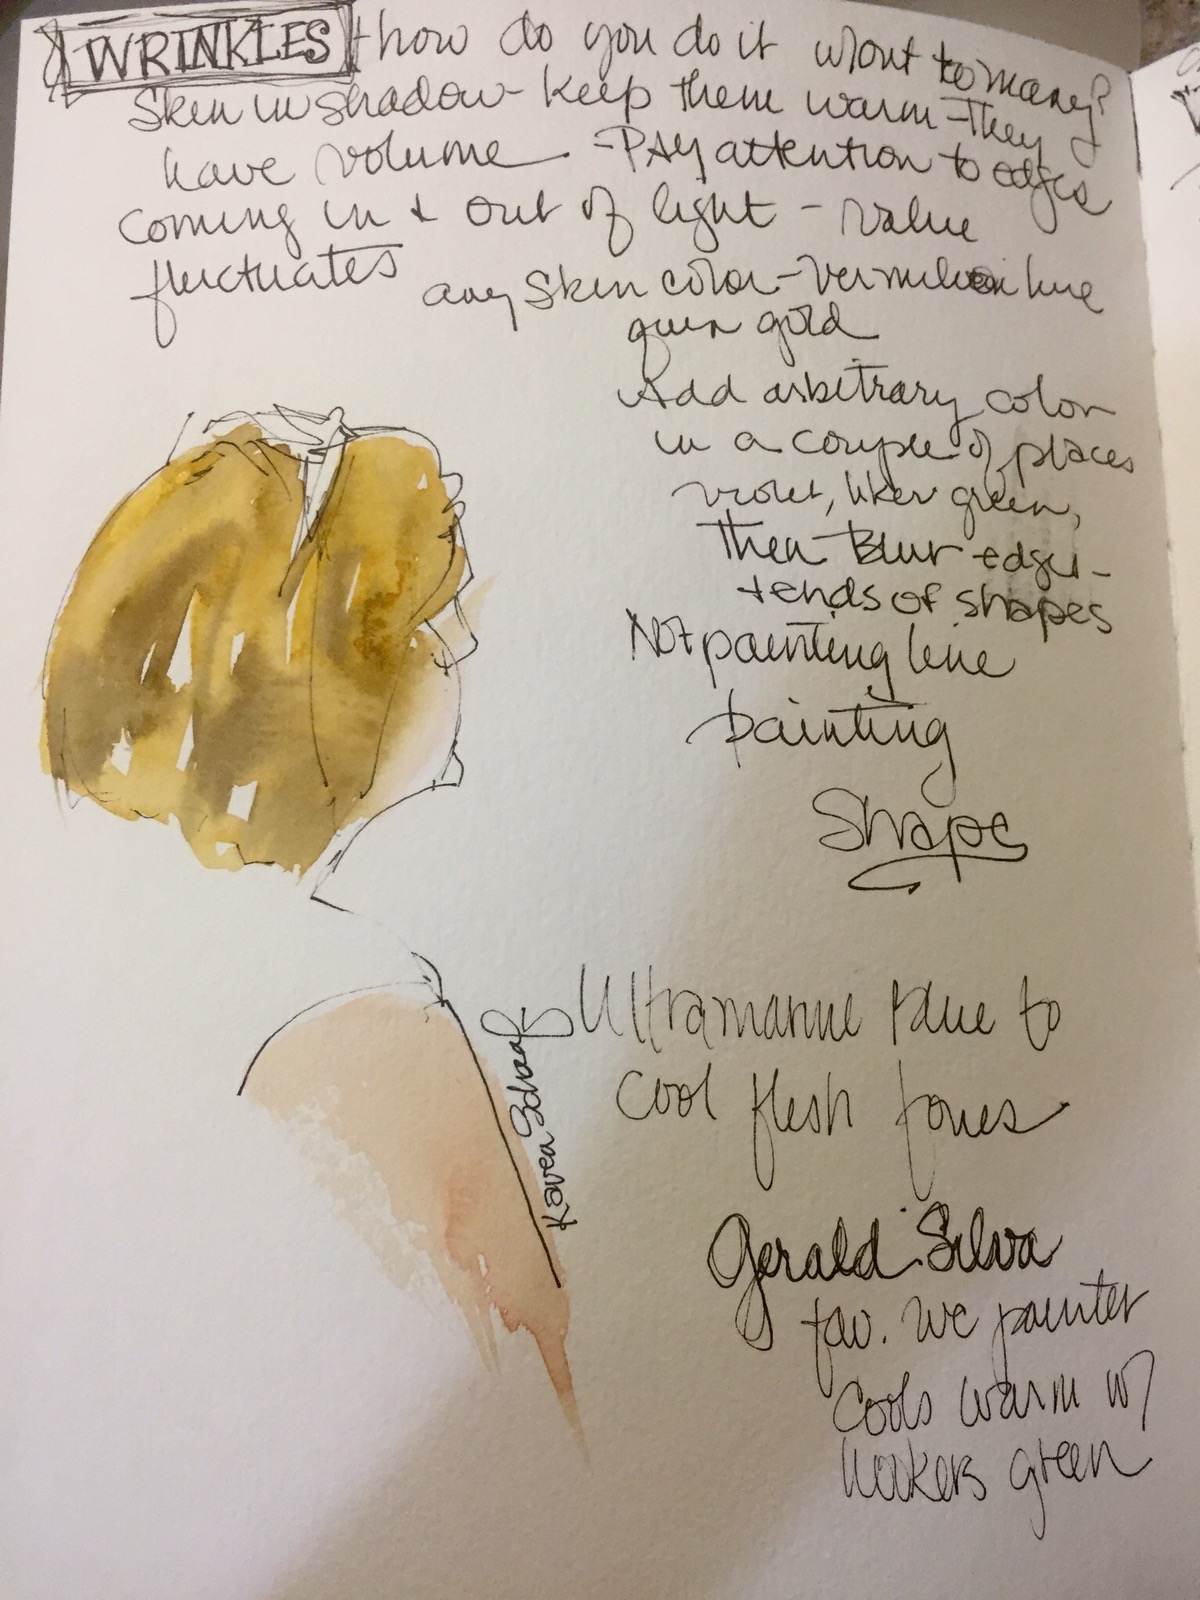 WRINKLES how do you do it w/out to many?
Skin in shadow - keep them warm - They
have volume. - PAy attention to edges
coming in + out of light - value
fluctuates
any skin color - Vermilion hue
quin gold
Add arbitrary color
in a couple of places
violet, green,
Then Blur edges -
+ ends of shapes
Not painting line
painting
Shape
Ultramarine blue to
cool flesh tones
Karen Schaaf
Gerald Silva
fav. wc painter
Cools warm w/
hookers green